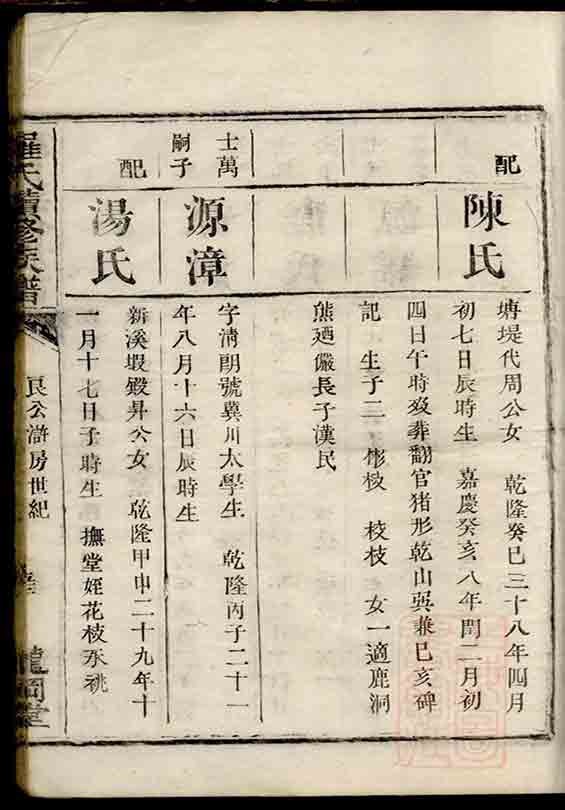 配
陳氏
塘堤代周公女 乾隆癸巳三十八年四月
初七日辰時生 嘉慶癸亥八年閏二月初
四日午時歿葬翻官猪形乾山巽兼巳亥碑
記 生子二 彬枝 枝枝 女一適鹿洞
熊廼儼長子漢民
士萬
嗣子
源漳
字清朗號冀川太學生 乾隆丙子二十一
年八月十六日辰時生
配
湯氏
新溪塅毀昇公女 乾隆甲申二十九年十
一月十七日子時生 撫堂姪花枝承祧
羅氏續修族譜
良公滸房世紀
龍岡堂